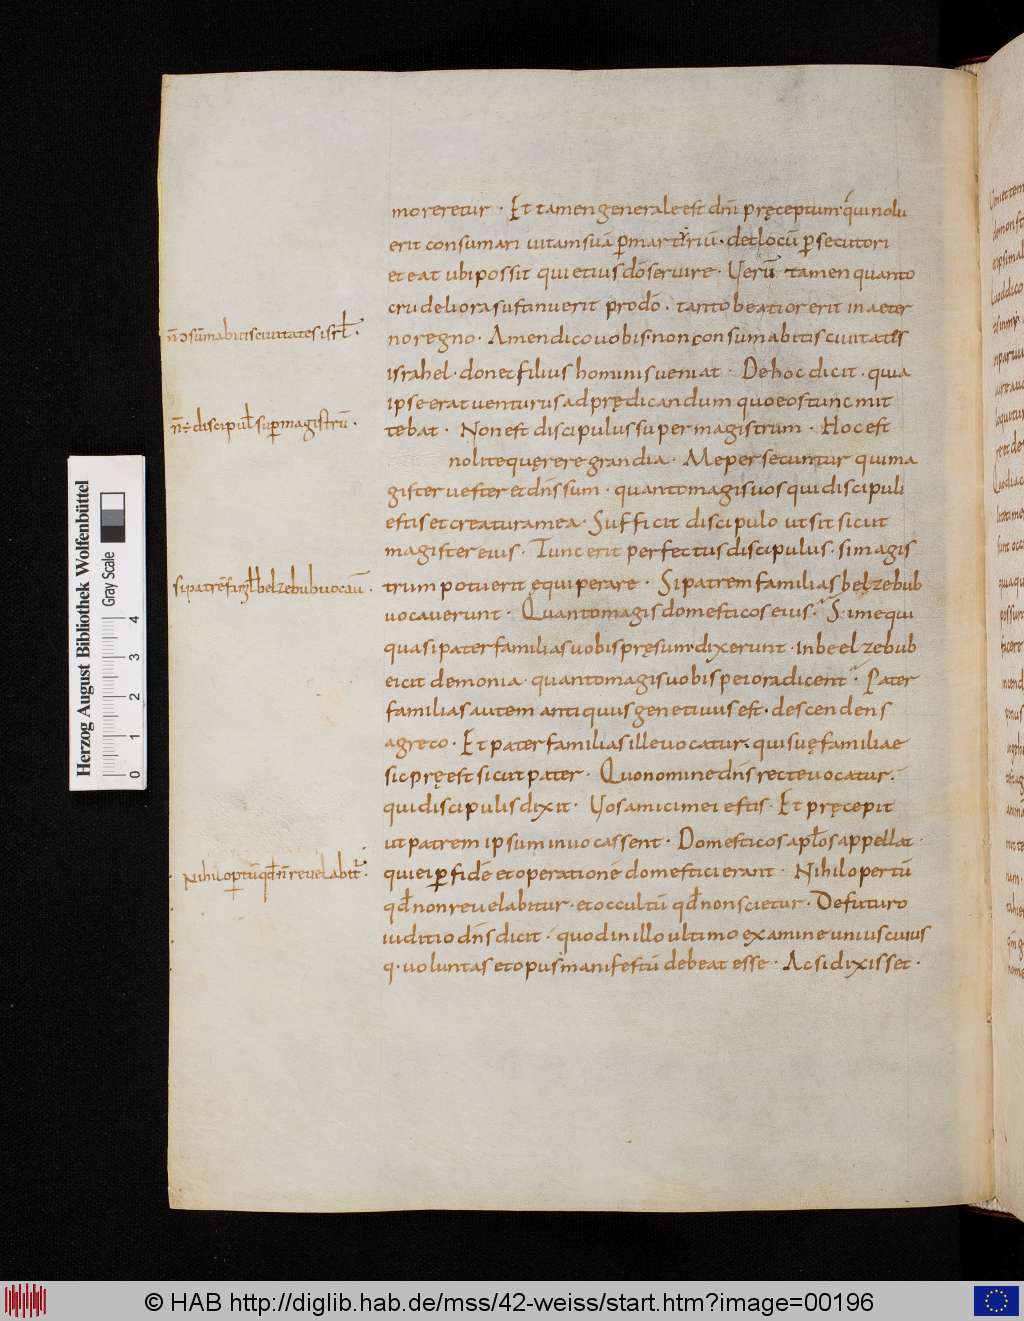 moreretur · Et tamen generale est dnī pręceptum qui nolu
erit consumari uitam suā ꝑ martiriū · det locū ꝑsecutori
et eat ubi possit quietius dō seruire · Uerū tamen quanto
crudeliora sustinuerit pro dō · tanto beatior erit in aeter
no regno · Amen dico uobis · non consumabitis ciuitates
israhel · donec filius hominis ueniat · De hoc dicit · quia
ipse erat uenturus ad prędicandum quo eos tunc mit
tebat · Non est discipulus super magistrum · Hoc est
nolite quęrere grandia · Me persecuntur qui ma
gister uester et dns̄ sum · quanto magis uos qui discipuli
estis et creatura mea · Sufficit discipulo ut sit sicut
magister eius · Tunc erit perfectus discipulus · si magis
trum potuerit ęquiperare · Si patrem familias bęlzebub
uocauerunt · Quanto magis domesticos eius · Si me qui
quasi pater familias uobis pręsum · dixerunt · in beelzebub
eicit demonia · quanto magis uobis peiora dicent · Pater
familias autem antiquus genetiuus est · descendens
a greco · Et pater familias ille uocatur · qui suę familiae
sic pręest sicut pater · Quo nomine dns̄ recte uocatur ·
qui discipulis dixit · Uos amici mei estis · Et pręcepit
ut patrem ipsum inuocassent · Domesticos apłos appellat ·
qui ei ꝑ fidē et operationē domestici erant · Nihil opertū
qđ non reuelabitur · et occultū qđ non scietur · De futuro
iuditio dns̄ dicit · quod in illo ultimo examine uniuscuius
q · uoluntas et opus manifestū debeat esse · Ac si dixisset ·
n̄ ɔsūmabitis ciuitates isrł ·
n̄ ÷ discipuł suꝑ magistrū ·
si patrē famł belzebub uocaū ·
Nihil opertū qđ n̄ reuelabit ·
Herzog August Bibliothek Wolfenbüttel
Gray Scale
0 1 2 3 4
© HAB http://diglib.hab.de/mss/42-weiss/start.htm?image=00196